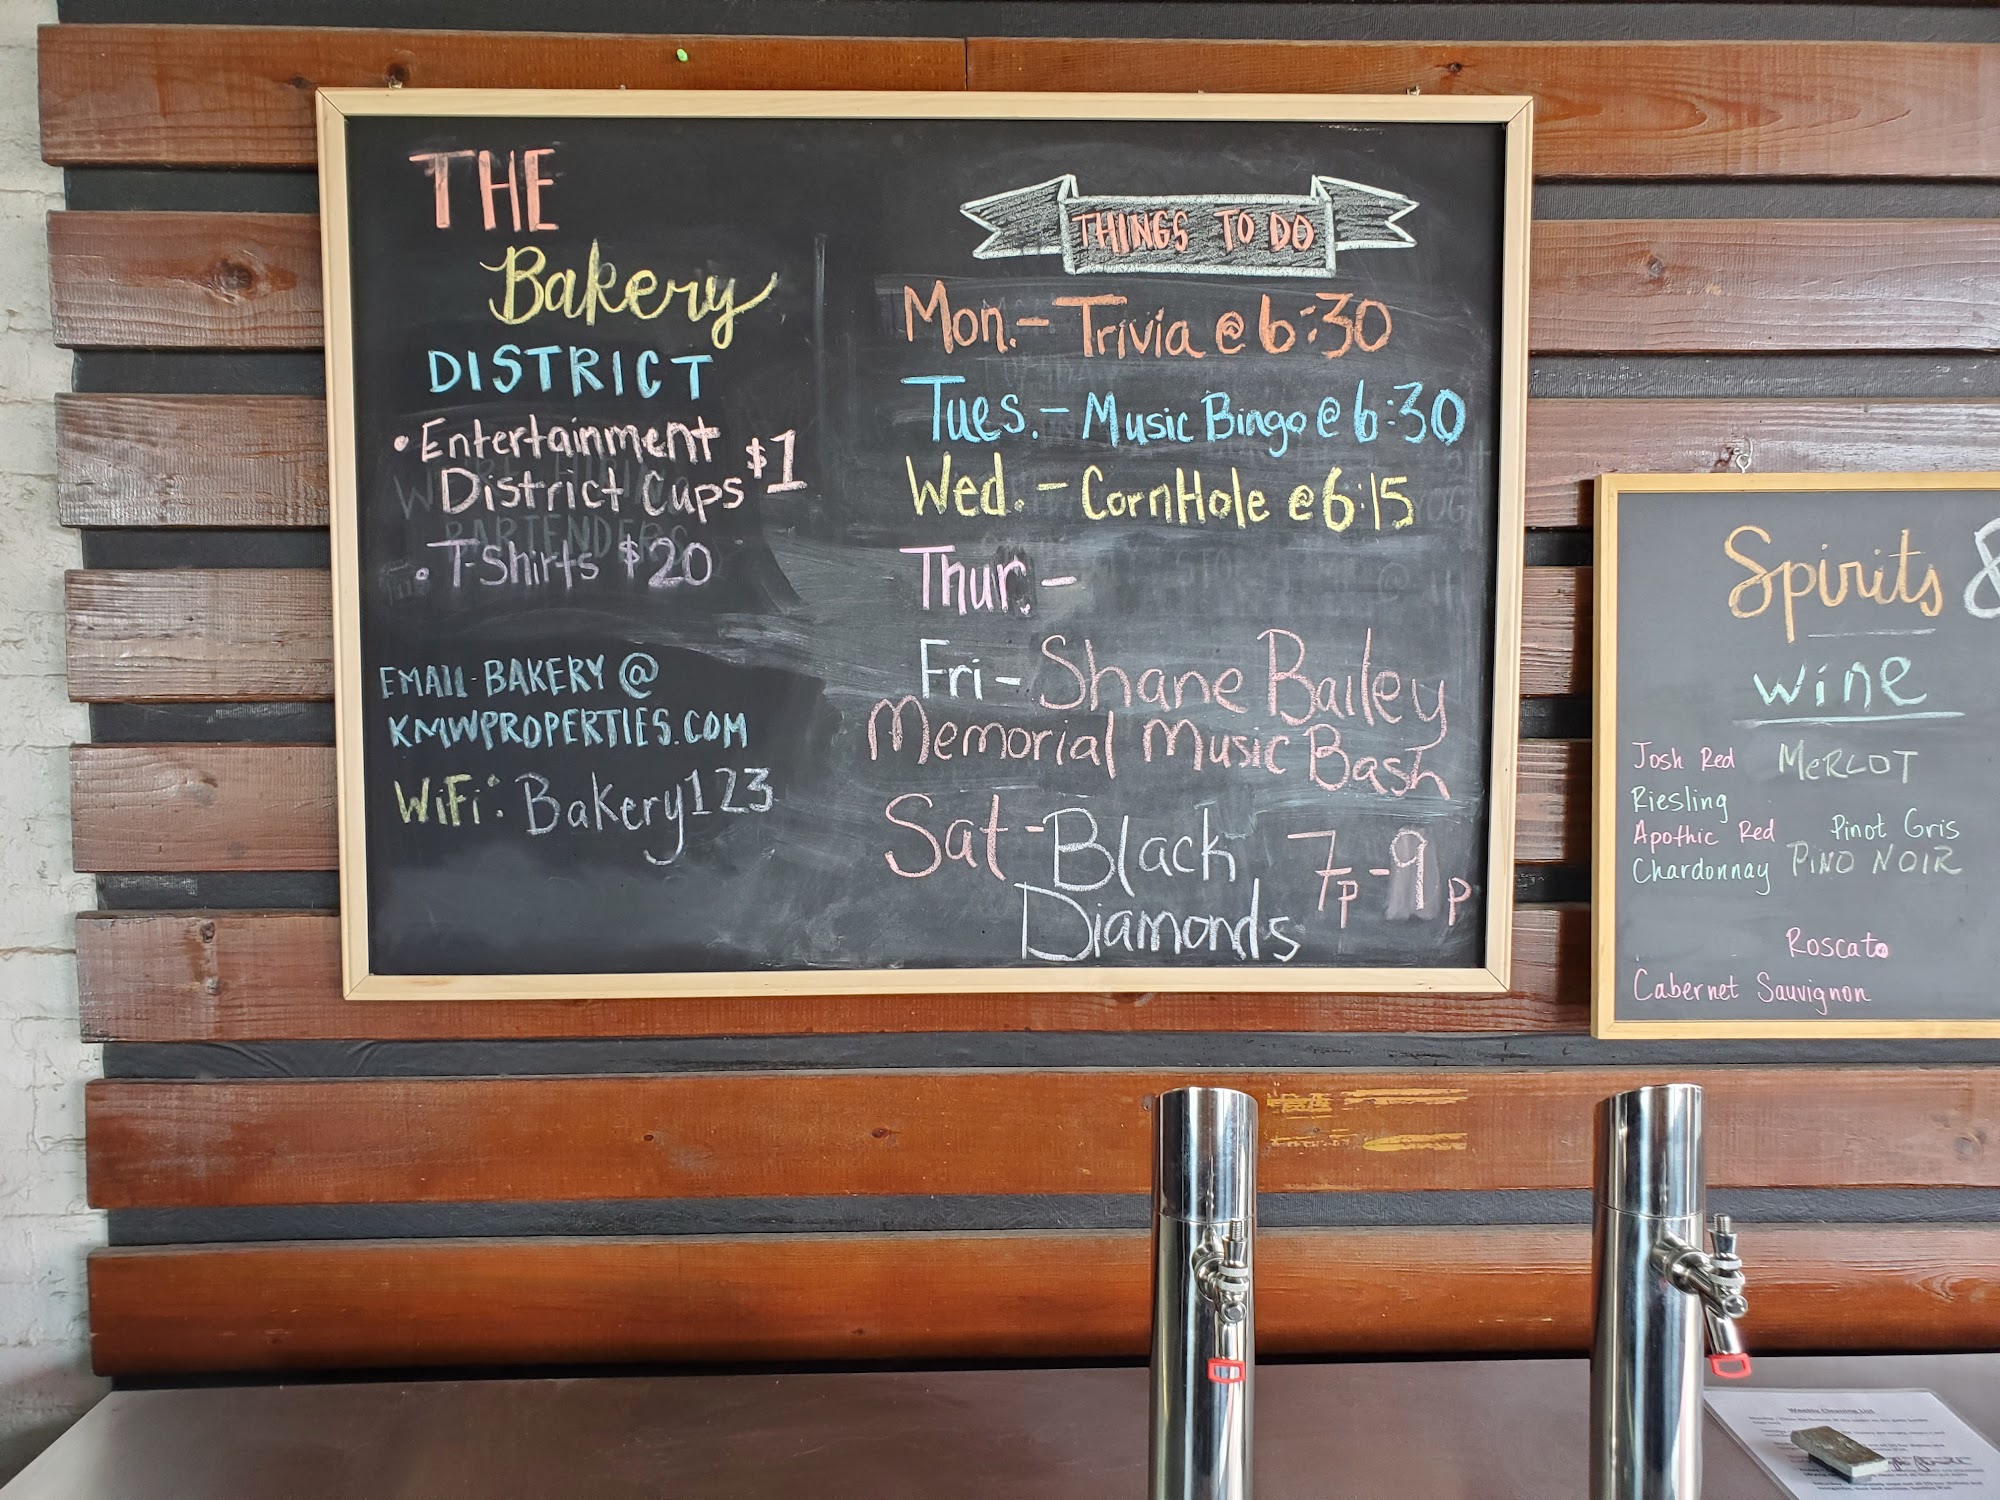 THE
Bakery
DISTRICT
• Entertainment
District Cups $1
• T-Shirts $20
EMAIL-BAKERY @
KMWPROPERTIES.COM
WiFi: Bakery123
THINGS TO DO
Mon.- Trivia @ 6:30
Tues.- Music Bingo @ 6:30
Wed.- CornHole @ 6:15
Thur. -
Fri- Shane Bailey
Memorial Music Bash
Sat - Black
Diamonds
7p-9p
Spirits &
Wine
Josh Red
Riesling
Apothic Red
Chardonnay
MeRLOT
Pinot Gris
PiNO NOIR
Roscato
Cabernet Sauvignon
Weekly Cleaning List